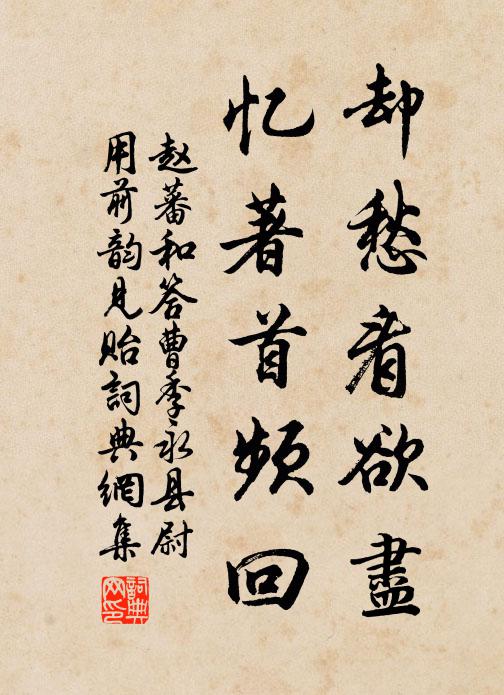 却愁看欲盡
忆著首频回
赵蕃和答曹季永县尉
用前韵见贻詞典網集
詞典網印